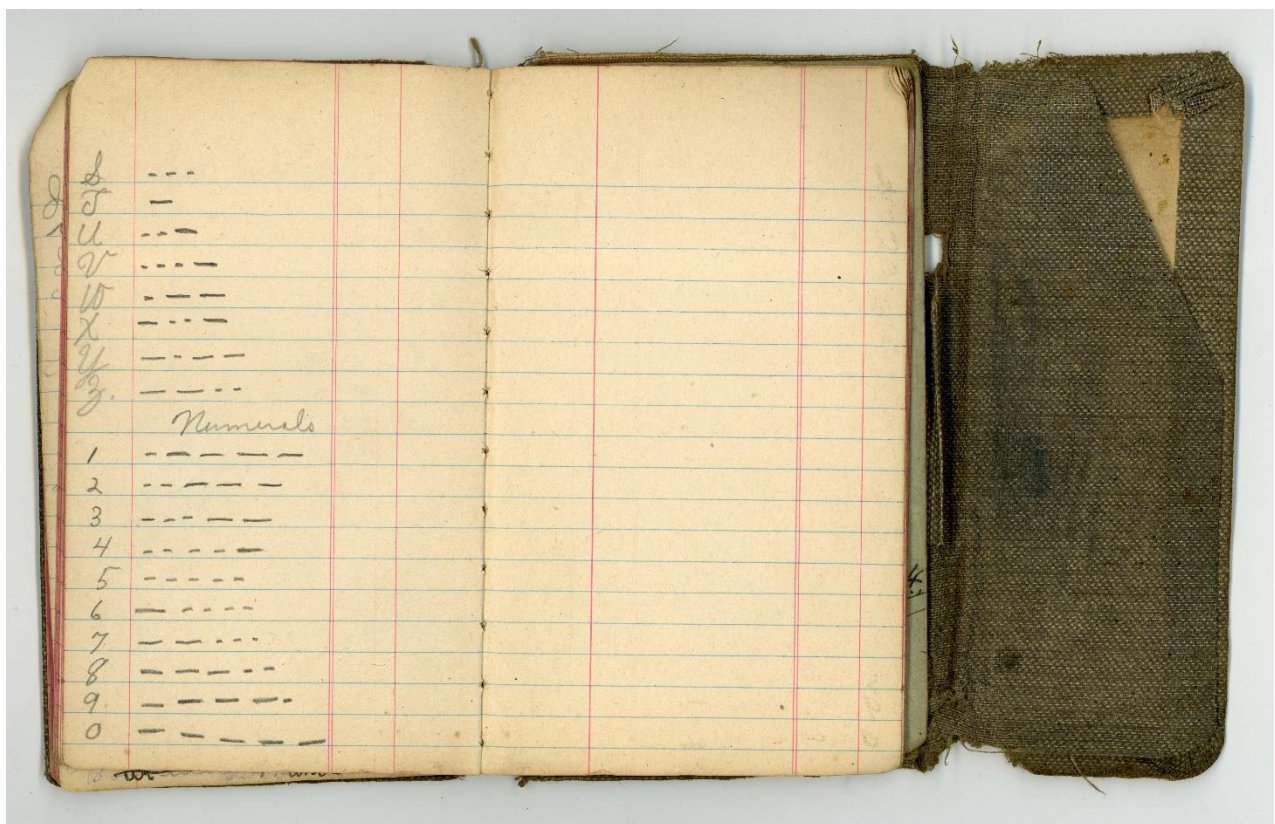 S - - -
T —
U - - —
V - - - —
W - — —
X — - - —
Y — - — —
Z. — — - -
Numerals
1 - — — — —
2 - - — — —
3 - - - — —
4 - - - - —
5 - - - - -
6 — - - - -
7 — — - - -
8 — — — - -
9 — — — — -
0 — — — — —